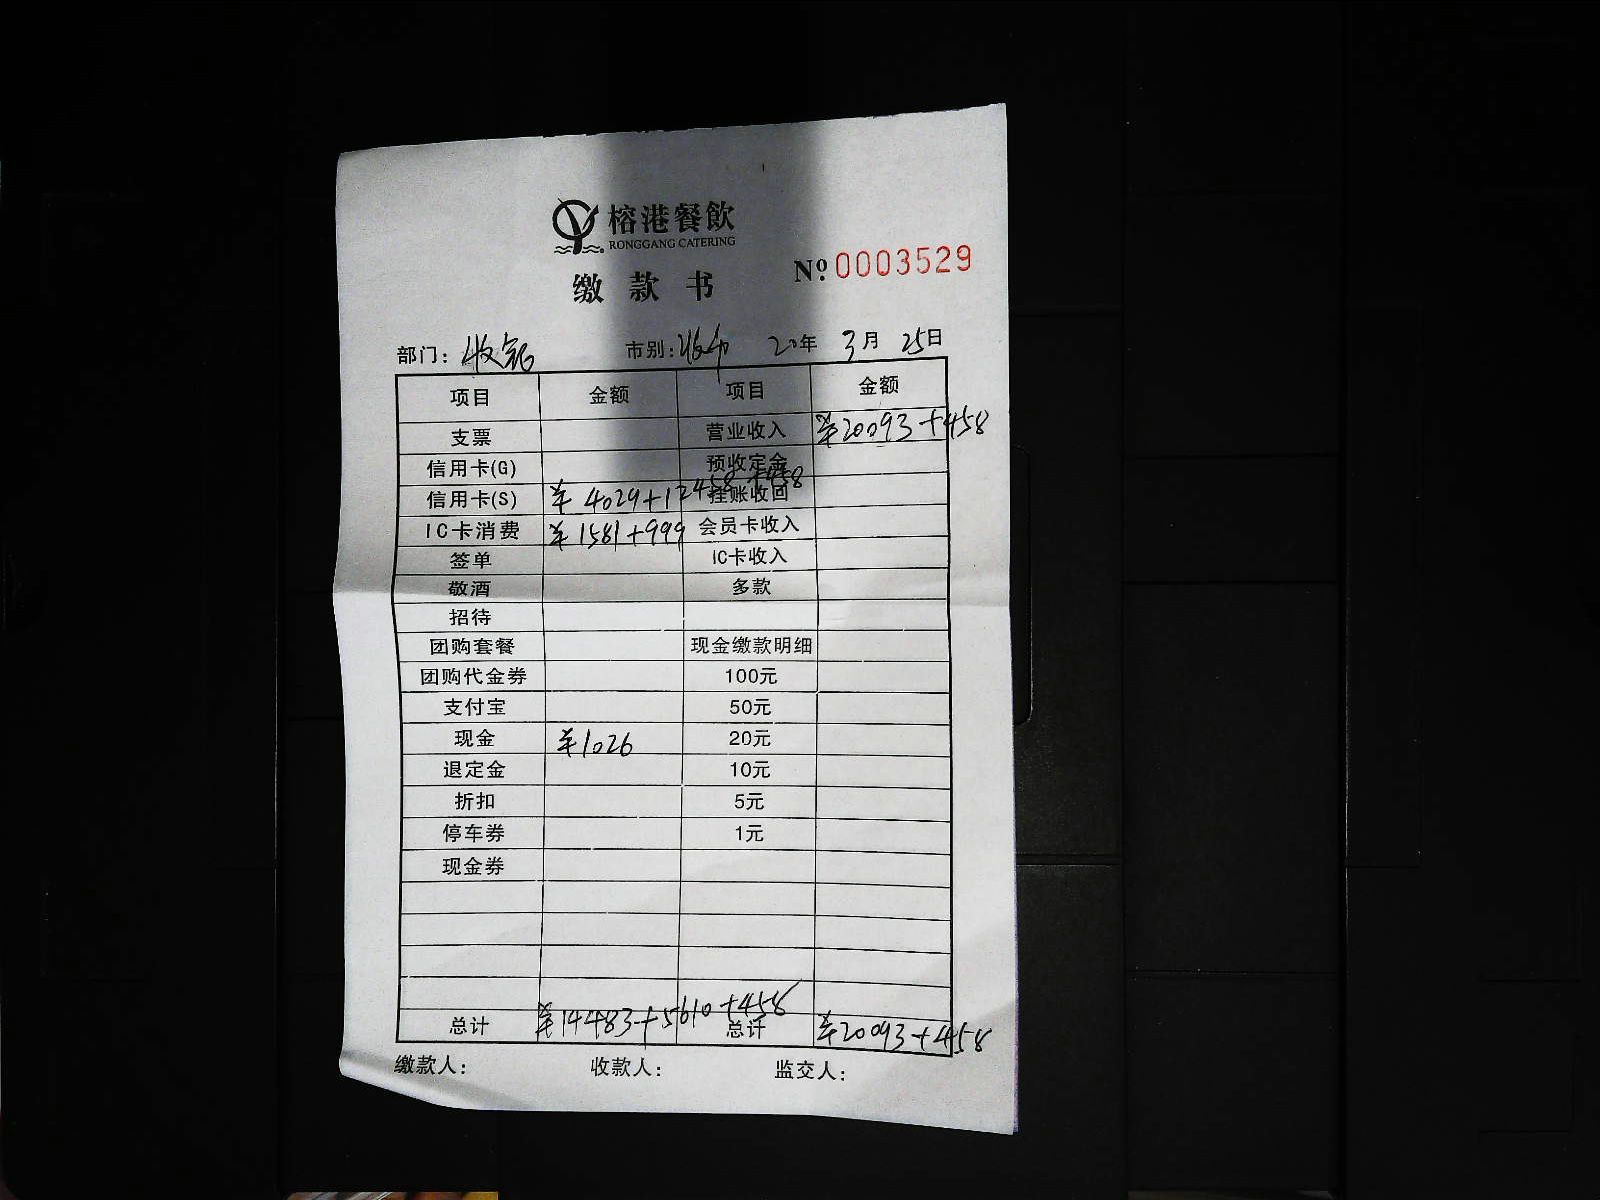 榕港餐飲
RONGGANG CATERING
缴款书 Nº 0003529
部门：收银 市别： 20年 3月 25日
项目 金额 项目 金额
支票 营业收入 ¥20093+458
信用卡(G) 预收定金
信用卡(S) ¥4029+12458+458 挂账收回
IC卡消费 ¥1581+999 会员卡收入
签单 IC卡收入
敬酒 多款
招待
团购套餐 现金缴款明细
团购代金券 100元
支付宝 50元
现金 ¥1026 20元
退定金 10元
折扣 5元
停车券 1元
现金券
总计 ¥14483+5610+458 总计 ¥20093+458
缴款人： 收款人： 监交人：